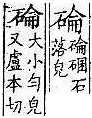 碖
碖硱石
落皃
碖
大小勻皃
又盧本切